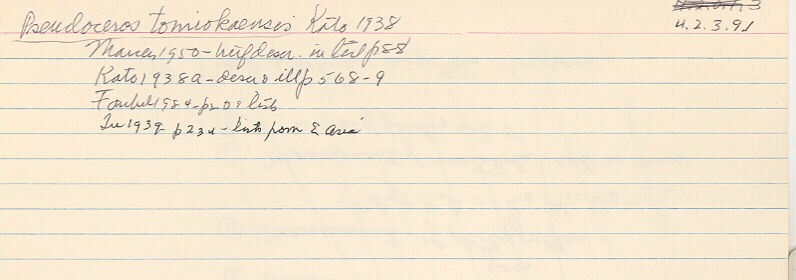 Pseudoceros tomiokaensis Kato 1938
4.2.3.91
Marcus 1950 - brief descr. in text p 88
Kato 1938a - descr & ill p 568-9
1984 - p 208 lists
1939 p 234 - lists from E Asia